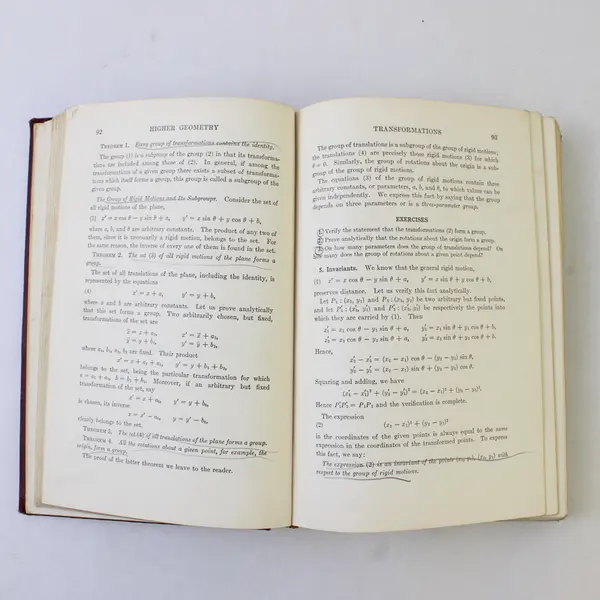 92 HIGHER GEOMETRY
THEOREM 1. Every group of transformations contains the identity.
The group (1) is a subgroup of the group (2) in that its transforma-
tions are included among those of (2). In general, if among the
transformations of a given group there exists a subset of transforma-
tions which itself forms a group, this group is called a subgroup of the
given group.
The Group of Rigid Motions and Its Subgroups. Consider the set of
all rigid motions of the plane,
(3) x' = x cos θ − y sin θ + a, y' = x sin θ + y cos θ + b,
where a, b, and θ are arbitrary constants. The product of any two of
them, since it is necessarily a rigid motion, belongs to the set. For
the same reason, the inverse of every one of them is found in the set.
THEOREM 2. The set (3) of all rigid motions of the plane forms a
group.
The set of all translations of the plane, including the identity, is
represented by the equations
(4) x' = x + a, y' = y + b,
where a and b are arbitrary constants. Let us prove analytically
that this set forms a group. Two arbitrarily chosen, but fixed,
transformations of the set are
x̄ = x + a₁, x' = x̄ + a₂,
ȳ = y + b₁, y' = ȳ + b₂,
where a₁, b₁, a₂, b₂ are fixed. Their product
x' = x + a₁ + a₂, y' = y + b₁ + b₂,
belongs to the set, being the particular transformation for which
a = a₁ + a₂, b = b₁ + b₂. Moreover, if an arbitrary but fixed
transformation of the set, say
x' = x + a₀, y' = y + b₀,
is chosen, its inverse
x = x' − a₀, y = y' − b₀,
clearly belongs to the set.
THEOREM 3. The set (4) of all translations of the plane forms a group.
THEOREM 4. All the rotations about a given point, for example, the
origin, form a group.
The proof of the latter theorem we leave to the reader.
TRANSFORMATIONS 93
The group of translations is a subgroup of the group of rigid motions;
the translations (4) are precisely those rigid motions (3) for which
θ = 0. Similarly, the group of rotations about the origin is a sub-
group of the group of rigid motions.
The equations (3) of the group of rigid motions contain three
arbitrary constants, or parameters, a, b, and θ, to which values can be
given independently. We express this fact by saying that the group
depends on three parameters or is a three-parameter group.
EXERCISES
1. Verify the statement that the transformations (2) form a group.
2. Prove analytically that the rotations about the origin form a group.
3. On how many parameters does the group of translations depend? On
how many does the group of rotations about a given point depend?
5. Invariants. We know that the general rigid motion,
(1) x' = x cos θ − y sin θ + a, y' = x sin θ + y cos θ + b,
preserves distance. Let us verify this fact analytically.
Let P₁ : (x₁, y₁) and P₂ : (x₂, y₂) be two arbitrary but fixed points,
and let P₁' : (x₁', y₁') and P₂' : (x₂', y₂') be respectively the points into
which they are carried by (1). Then
x₁' = x₁ cos θ − y₁ sin θ + a, y₁' = x₁ sin θ + y₁ cos θ + b,
x₂' = x₂ cos θ − y₂ sin θ + a, y₂' = x₂ sin θ + y₂ cos θ + b.
Hence,
x₂' − x₁' = (x₂ − x₁) cos θ − (y₂ − y₁) sin θ,
y₂' − y₁' = (x₂ − x₁) sin θ + (y₂ − y₁) cos θ.
Squaring and adding, we have
(x₂' − x₁')² + (y₂' − y₁')² = (x₂ − x₁)² + (y₂ − y₁)².
Hence P₁'P₂' = P₁P₂ and the verification is complete.
The expression
(2) (x₂ − x₁)² + (y₂ − y₁)²
in the coordinates of the given points is always equal to the same
expression in the coordinates of the transformed points. To express
this fact, we say:
The expression (2) is an invariant of the points (x₁, y₁), (x₂, y₂) with
respect to the group of rigid motions.